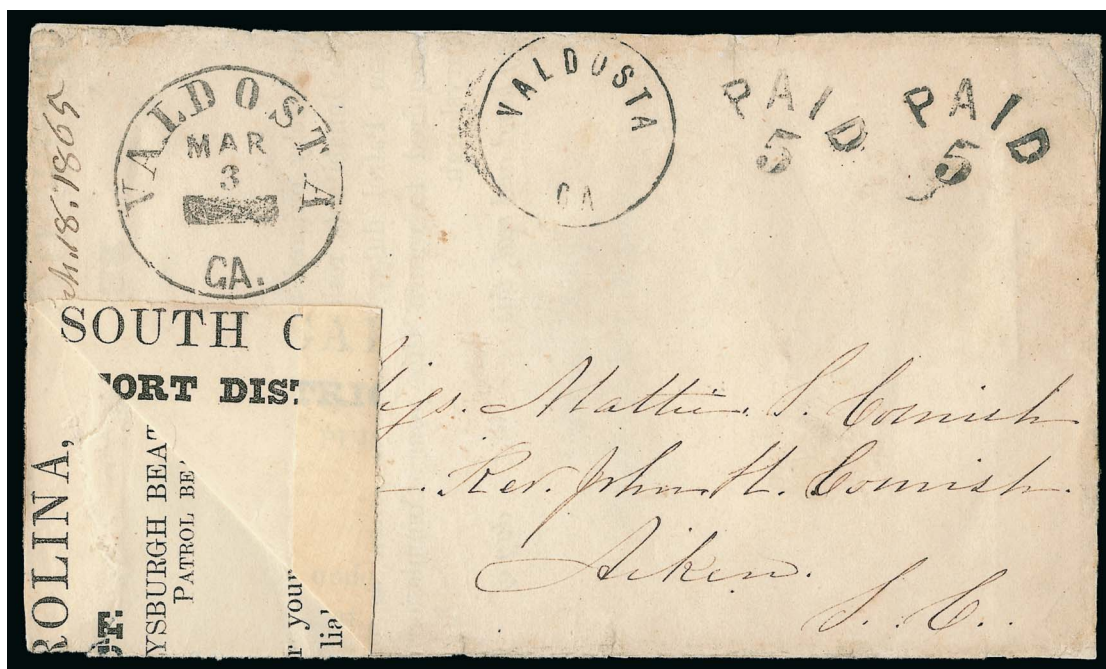 VALDOSTA
MAR
3
GA.
VALDOSTA
GA
PAID
5
PAID
5
18. 1865
SOUTH C
FORT DIST
ROLINA,
CT.
YSBURGH BEAT
PATROL BE
r your
lial
Miss. Mattie. S. Cornish
Rev. John H. Cornish.
Aiken.
S. C.